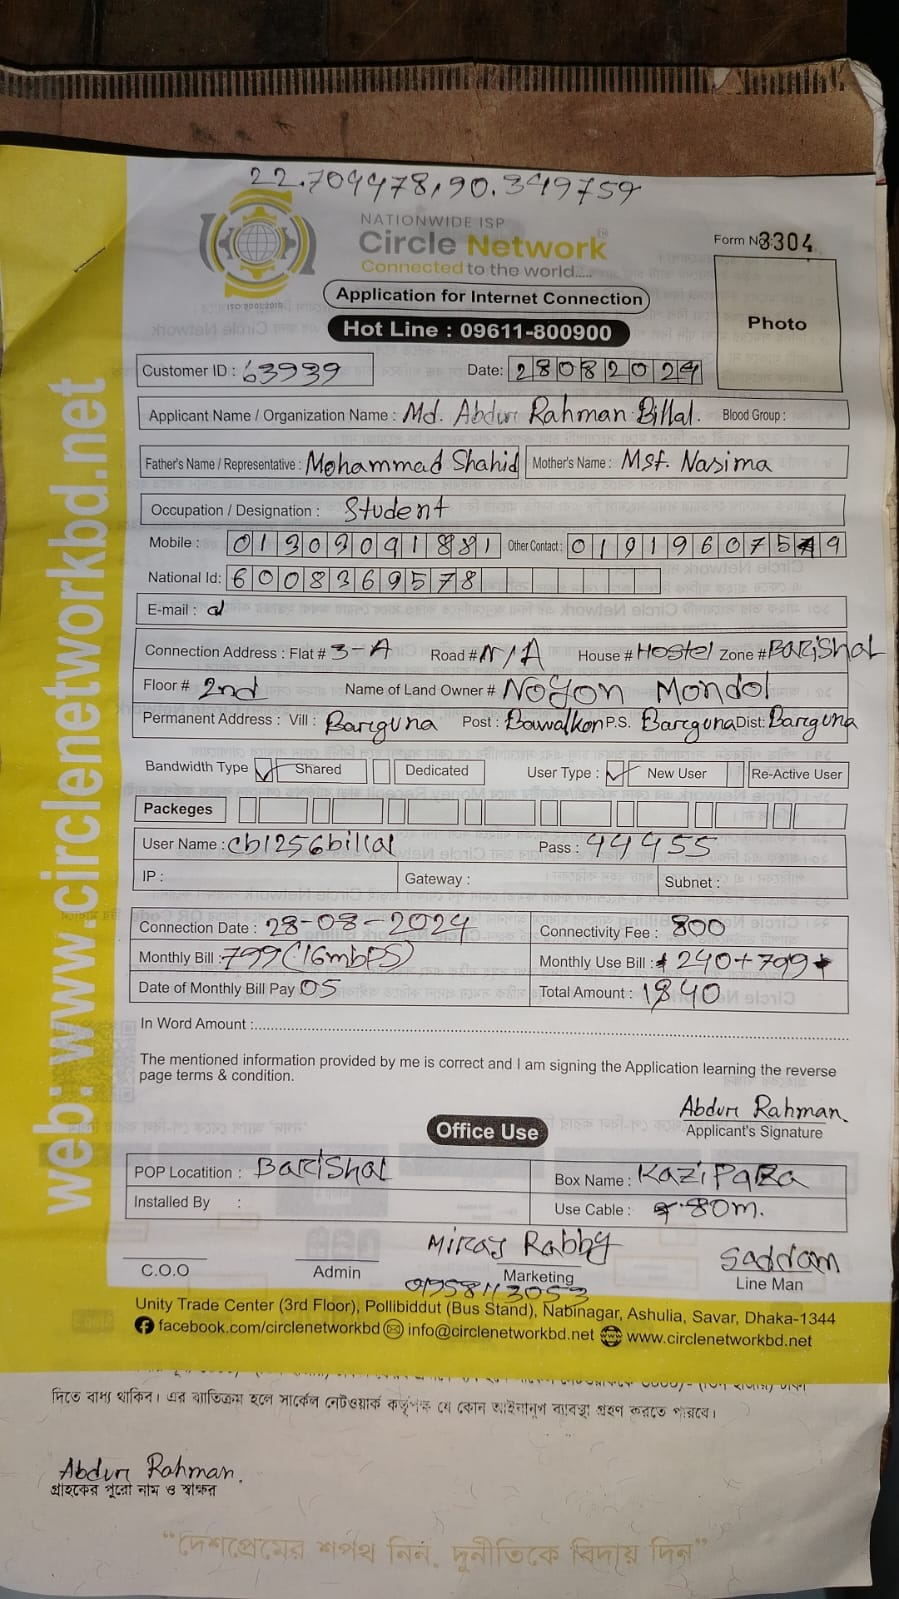 22.704478,90.349759
NATIONWIDE ISP
Circle Network
Connected to the world.....
ISO 9001:2015
Form No 3304
Application for Internet Connection
Hot Line : 09611-800900
Photo
Customer ID : 63939
Date: 28082024
Applicant Name / Organization Name : Md. Abdur Rahman Billal. Blood Group :
Father's Name / Representative : Mohammad Shahid Mother's Name : Mst. Nasima
Occupation / Designation : Student
Mobile : 01303091881 Other Contact : 01919607549
National Id: 6008369578
E-mail :
Connection Address : Flat # 3-A Road # N/A House # Hostel Zone # Barishal
Floor # 2nd Name of Land Owner # Noyon Mondol
Permanent Address : Vill : Barguna Post : Bawalkon P.S. Barguna Dist: Barguna
Bandwidth Type Shared Dedicated User Type : New User Re-Active User
Packeges
User Name : cb1256billal Pass : 44455
IP : Gateway : Subnet :
Connection Date : 28-08-2024 Connectivity Fee : 800
Monthly Bill : 799 (16mbPS) Monthly Use Bill : 240+799
Date of Monthly Bill Pay 05 Total Amount : 1840
In Word Amount :
The mentioned information provided by me is correct and I am signing the Application learning the reverse
page terms & condition.
Abdur Rahman
Applicant's Signature
Office Use
POP Locatition : Barishal Box Name : Kazi Para
Installed By : Use Cable : 80m.
Miraj Rabby Saddam
C.O.O Admin Marketing Line Man
01958113053
Unity Trade Center (3rd Floor), Pollibiddut (Bus Stand), Nabinagar, Ashulia, Savar, Dhaka-1344
facebook.com/circlenetworkbd info@circlenetworkbd.net www.circlenetworkbd.net
web: www.circlenetworkbd.net
দিতে বাধ্য থাকিব। এর ব্যতিক্রম হলে সার্কেল নেটওয়ার্ক কর্তৃপক্ষ যে কোন আইনানুগ ব্যবস্থা গ্রহণ করতে পারবে।
Abdur Rahman.
গ্রাহকের পুরো নাম ও স্বাক্ষর
“দেশপ্রেমের শপথ নিন, দুর্নীতিকে বিদায় দিন”